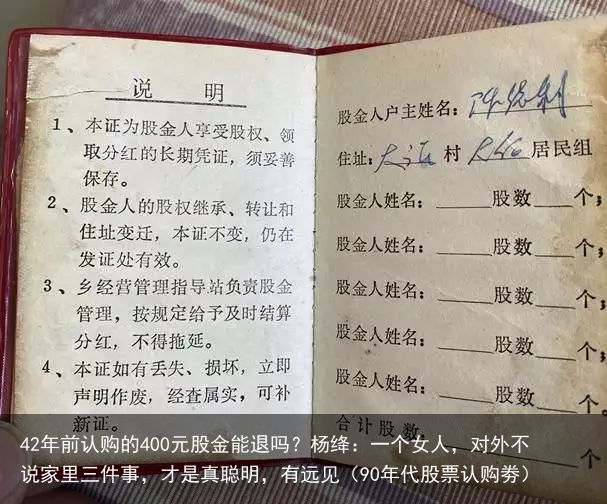 说 明
1、本证为股金人享受股权、领
取分红的长期凭证，须妥善
保存。
2、股金人的股权继承、转让和
住址变迁，本证不变，仍在
发证处有效。
3、乡经营管理指导站负责股金
管理，按规定给予及时结算
分红，不得拖延。
4、本证如有丢失、损坏，立即
声明作废，经查属实，可补
新证。
股金人户主姓名：
住址： 村 居民组
股金人姓名：____股数___个；
股金人姓名：____股数___个；
股金人姓名：____股数___个；
股金人姓名：____股数___个；
股金人姓名：____股数___个；
合计股数：____个；
42年前认购的400元股金能退吗？杨绛：一个女人，对外不
说家里三件事，才是真聪明，有远见（90年代股票认购券）